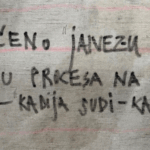 ČENO "JANEZU
U PROCESA NA
- KADIJA SUDI - KA